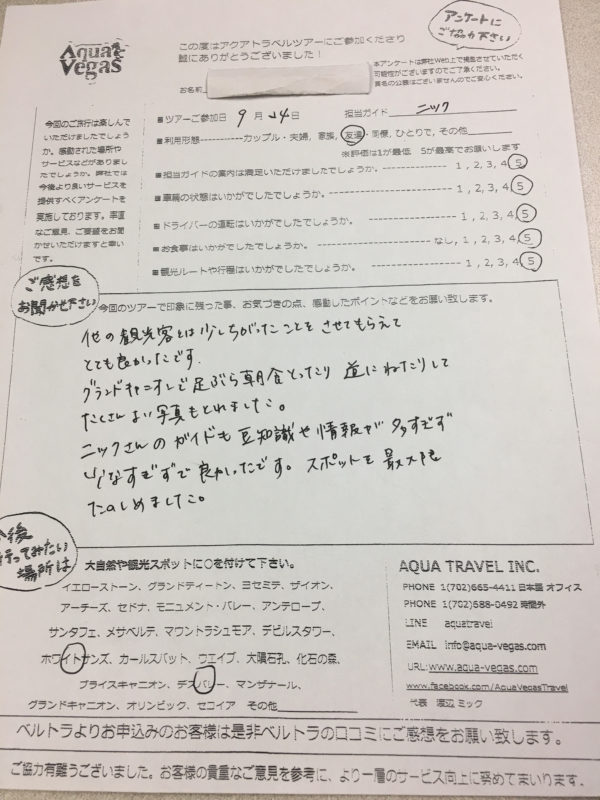 アンケートに
ご協力下さい
Aqua
Vegas
この度はアクアトラベルツアーにご参加くださり
誠にありがとうございました！
本アンケートは弊社Web上で掲載させていただく
可能性がございますのでご了承ください。
実名の公表はございませんのでご安心ください。
お名前
今回のご旅行は楽しんで
いただけましたでしょう
か。感動された場所や
サービスなどがありまし
たでしょうか。弊社では
今後より良いサービスを
提供すべくアンケートを
実施しております。率直
なご意見、ご要望をお聞
かせいただけますと幸い
です。
■ツアーご参加日 9月24日 担当ガイド ニック
■利用形態-----------カップル・夫婦, 家族, 友達・同僚, ひとりで, その他
※評価は1が最低 5が最高でお願いします
■担当ガイドの案内は満足いただけましたでしょうか。 1, 2, 3, 4, 5
■車輌の状態はいかがでしたでしょうか。 1, 2, 3, 4, 5
■ドライバーの運転はいかがでしたでしょうか。 1, 2, 3, 4, 5
■お食事はいかがでしたでしょうか。 なし, 1, 2, 3, 4, 5
■観光ルートや行程はいかがでしたでしょうか。 1, 2, 3, 4, 5
ご感想を
お聞かせ下さい
今回のツアーで印象に残った事、お気づきの点、感動したポイントなどをお願い致します。
他の観光客とは少しちがったことをさせてもらえて
とても良かったです.
グランドキャニオンで足ぶら朝食とったり 道にねたりして
たくさんよい写真もとれました。
ニックさんのガイドも豆知識や情報が多すぎず
少なすぎずで良かったです。スポットを最大限
たのしめました。
今後
行ってみたい
場所は
大自然や観光スポットに○を付けて下さい。
イエローストーン、グランドティートン、ヨセミテ、ザイオン、
アーチーズ、セドナ、モニュメント・バレー、アンテロープ、
サンタフェ、メサベルデ、マウントラシュモア、デビルスタワー、
ホワイトサンズ、カールスバット、ウエイブ、大隕石孔、化石の森、
ブライスキャニオン、デスバレー、マンザナール、
グランドキャニオン、オリンピック、セコイア その他
AQUA TRAVEL INC.
PHONE 1(702)665-4411 日本語 オフィス
PHONE 1(702)688-0492 時間外
LINE aquatravel
EMAIL info@aqua-vegas.com
URL:www.aqua-vegas.com
www.facebook.com/AquaVegasTravel
代表 渡辺 ミック
ベルトラよりお申込みのお客様は是非ベルトラの口コミにご感想をお願い致します。
ご協力有難うございました。お客様の貴重なご意見を参考に、より一層のサービス向上に努めてまいります。